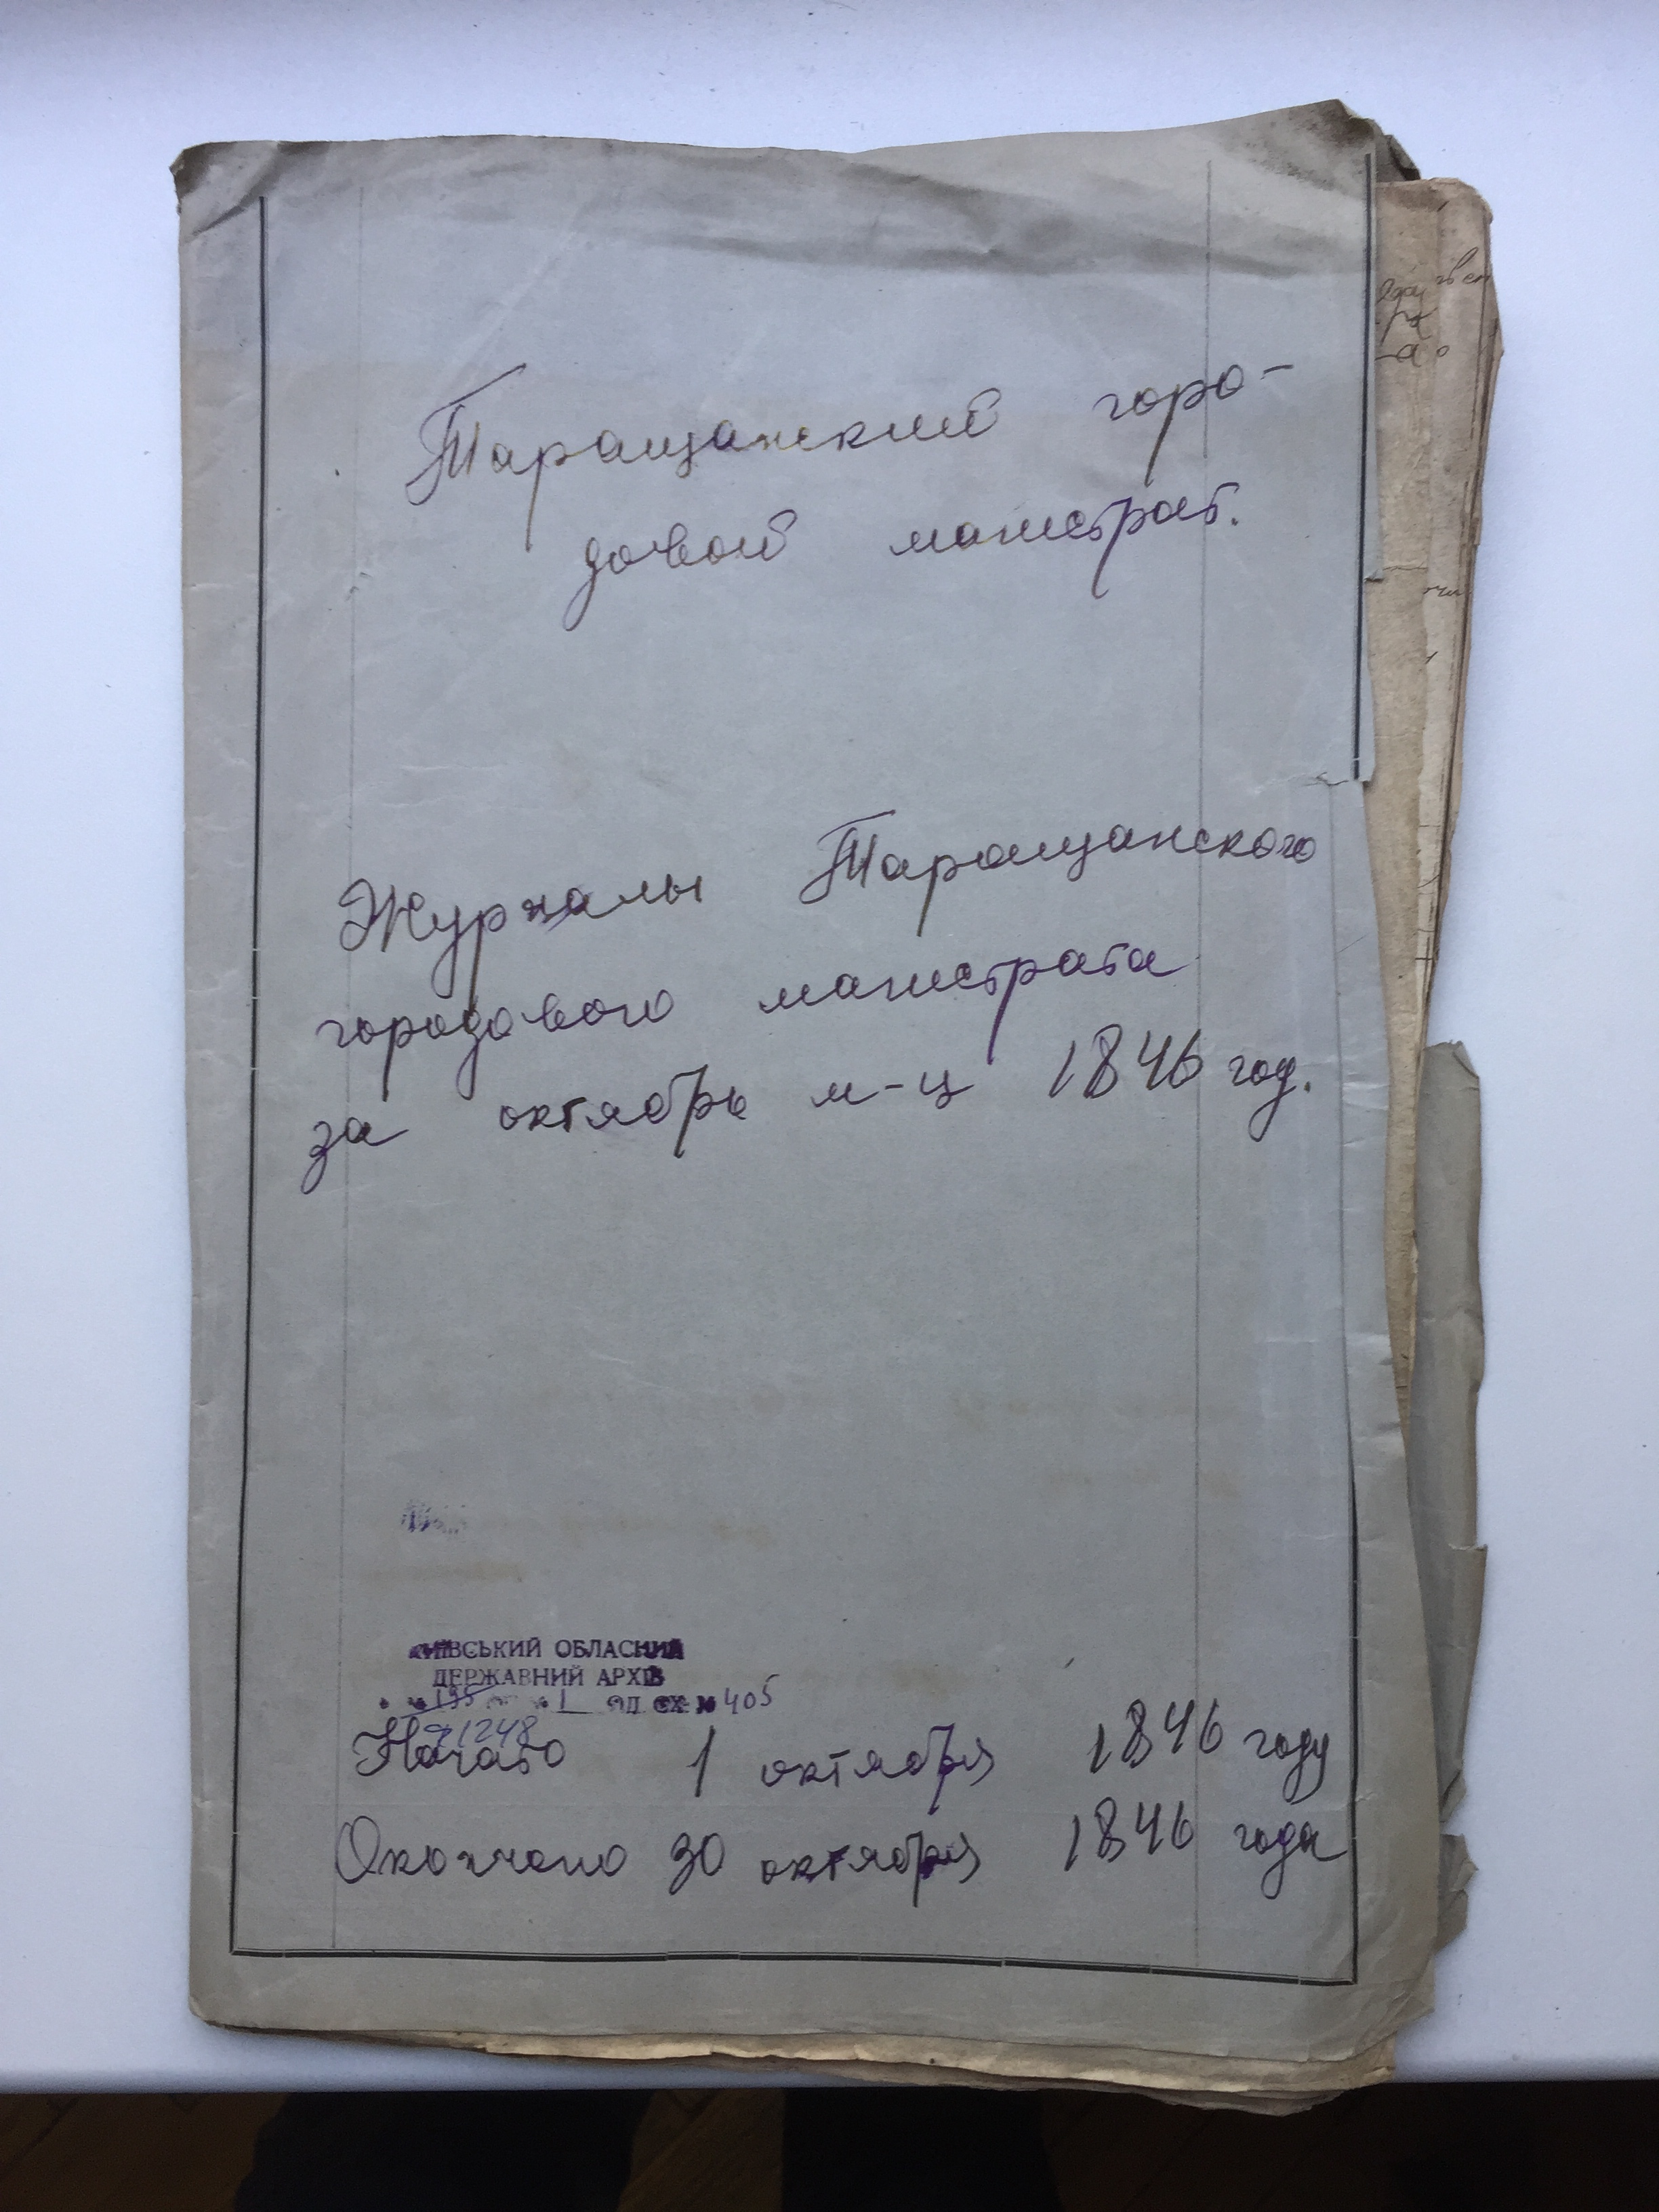 Таращанский горо-
довой магистрат.
Журналы Таращанского
городового магистрата
за октябрь м-ц 1846 год.
КИЇВСЬКИЙ ОБЛАСНИЙ
ДЕРЖАВНИЙ АРХІВ
№ 195 № 1 ОД. ЗХ. № 405
1248
Начато 1 октября 1846 году
Окончено 30 октября 1846 года